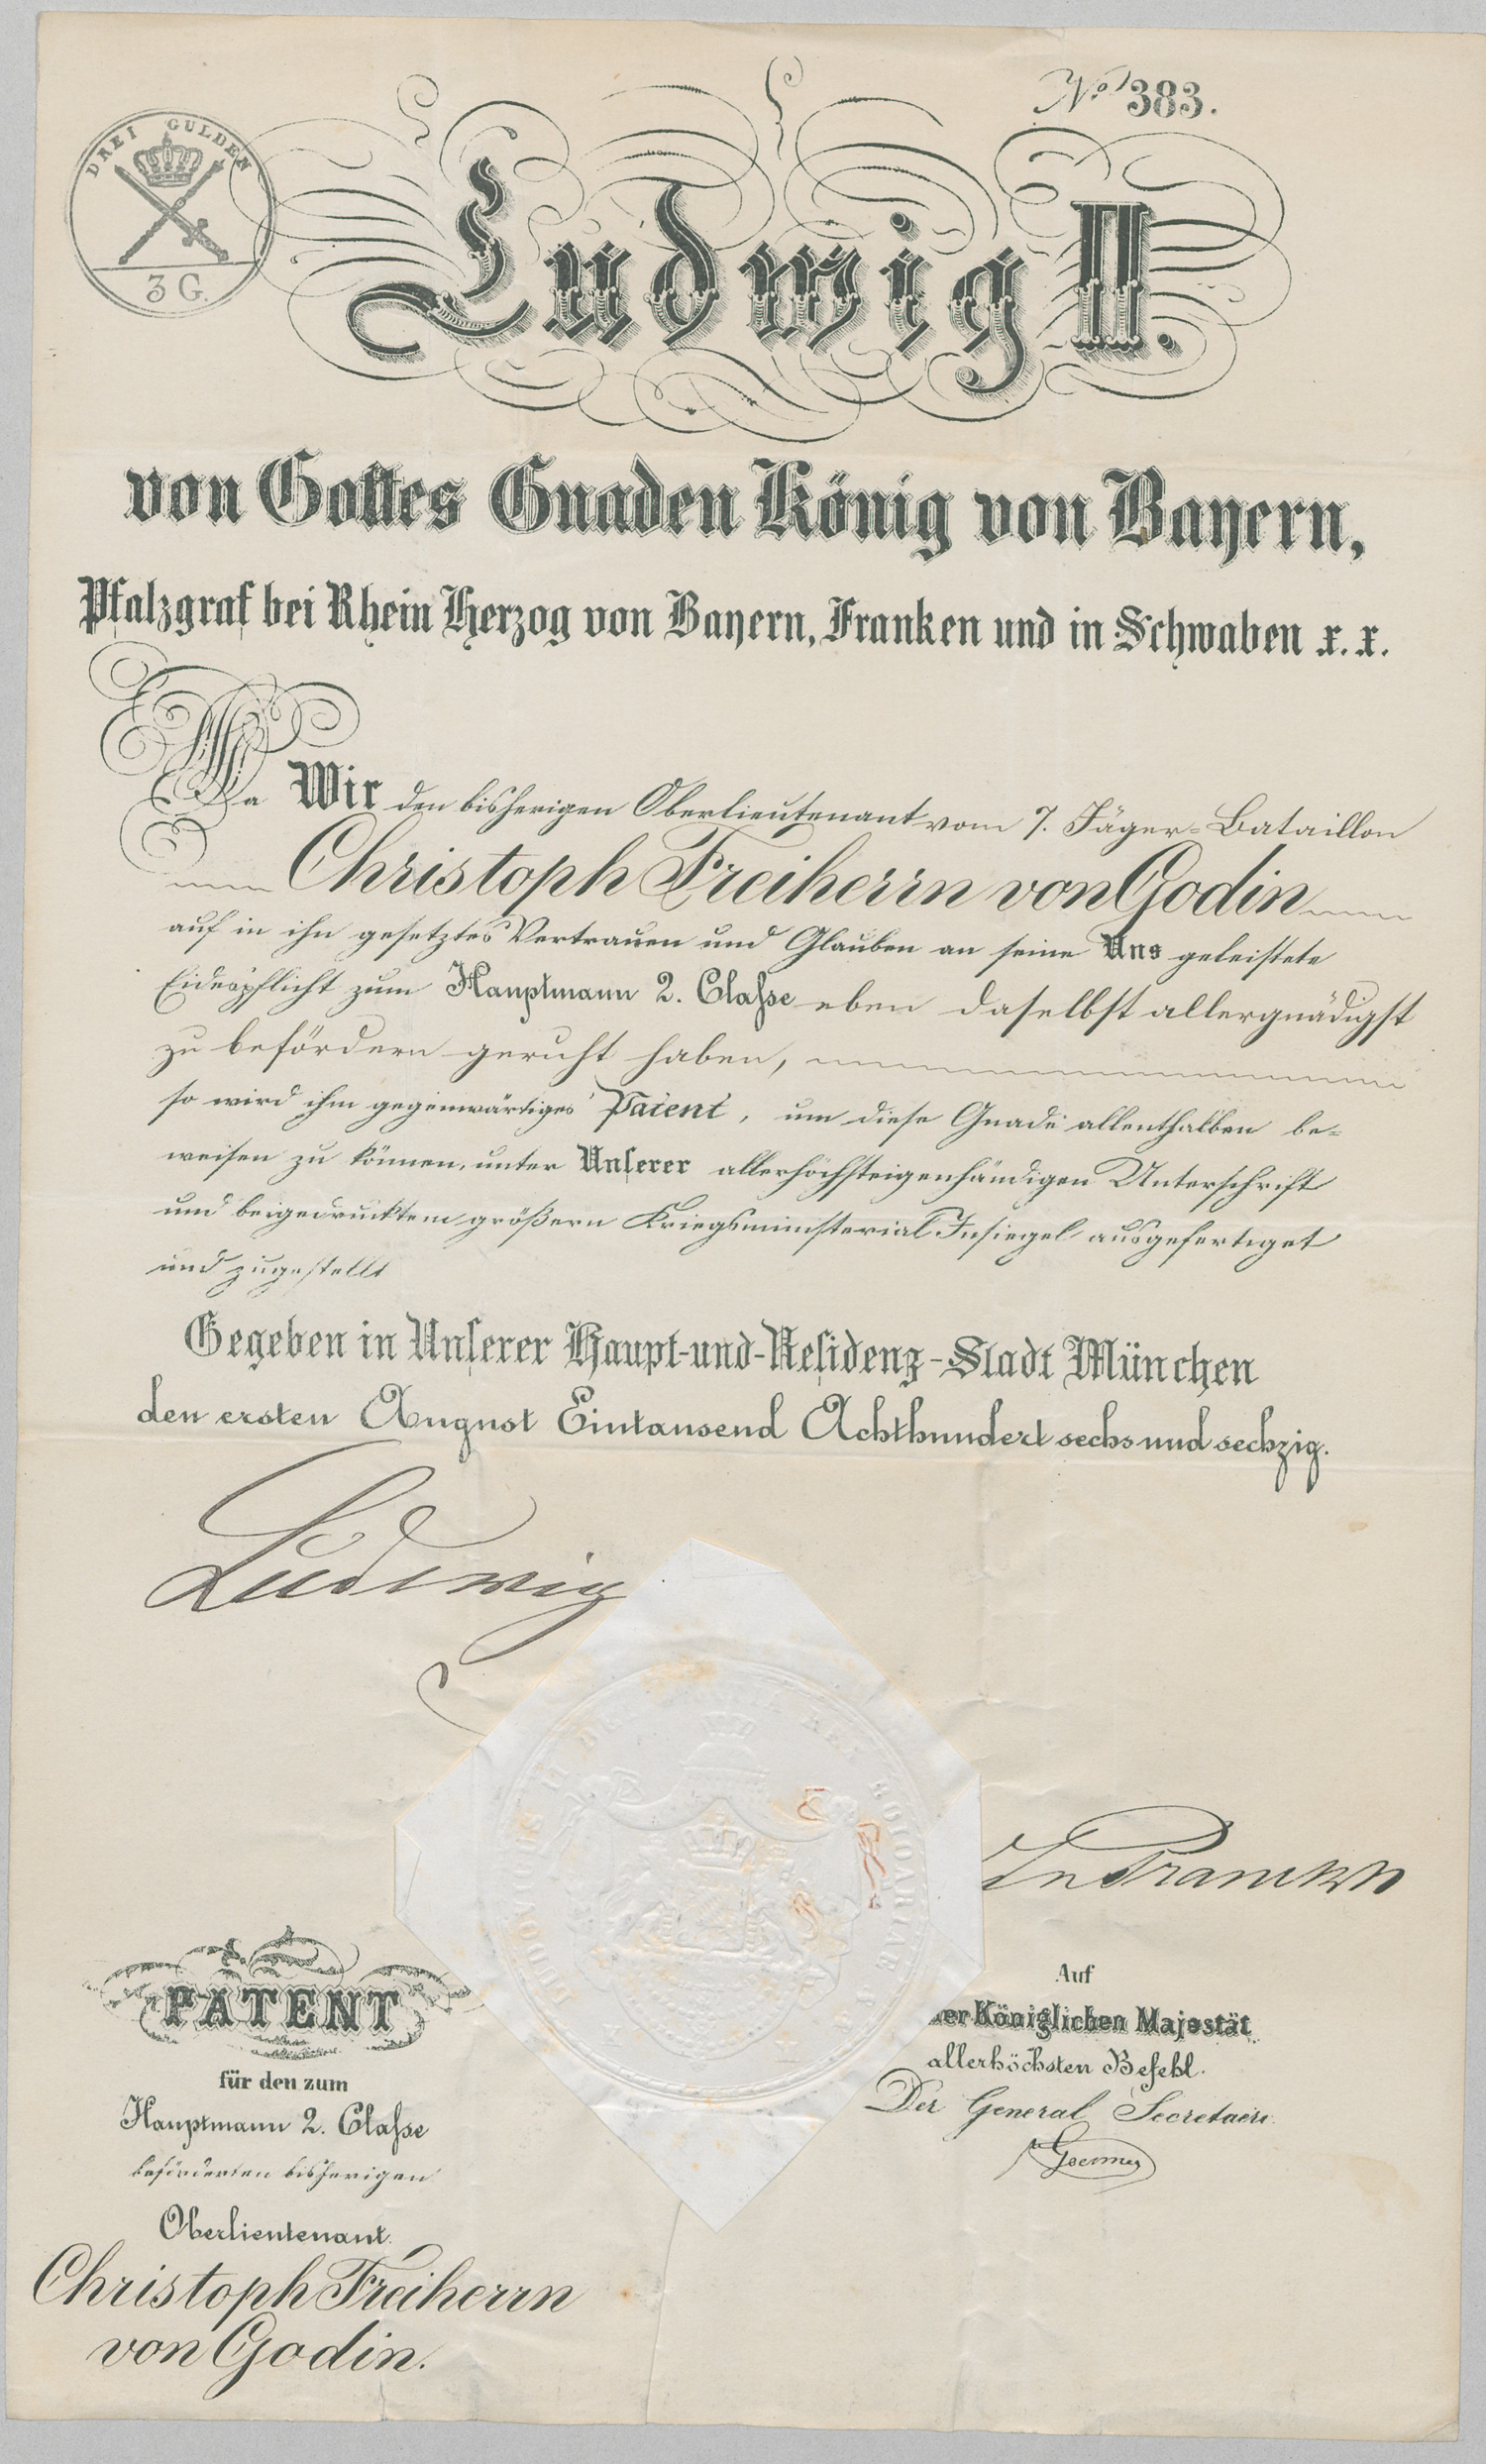 No 383.
DREI GULDEN
3 G.
Ludwig II.
von Gottes Gnaden König von Bayern,
Pfalzgraf bei Rhein Herzog von Bayern, Franken und in Schwaben x. x.
Da Wir den bisherigen Oberlieutenant vom 7. Jäger-Bataillon
Christoph Freiherrn von Godin
auf in ihn gesetztes Vertrauen und Glauben an seine Uns geleistete
Eidespflicht zum Hauptmann 2. Classe eben daselbst allergnädigst
zu befördern geruht haben,
so wird ihm gegenwärtiges Patent, um diese Gnade allenthalben be-
weisen zu können, unter Unserer allerhöchsteigenhändigen Unterschrift
und beigedrucktem größern Kriegsministerial Insiegel ausgefertiget
und zugestellt
Gegeben in Unserer Haupt-und-Residenz-Stadt München
den ersten August Eintausend Achthundert sechs und sechzig.
Ludwig
Auf
der Königlichen Majestät
allerhöchsten Befehl.
Der General Secretaire
PATENT
für den zum
Hauptmann 2. Classe
beförderten bisherigen
Oberlieutenant
Christoph Freiherrn
von Godin.